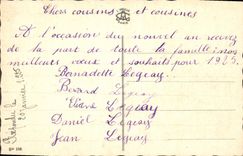 Chers cousins et cousines
A l'occasion du nouvel an recevez
de la part de toute la famille nos
meilleurs voeux et souhaits pour 1925.
Bernadette Legeay
Bernard Legeay
Eliane Legeay
Daniel Legeay
Jean Legeay
le
20 janvier 1925